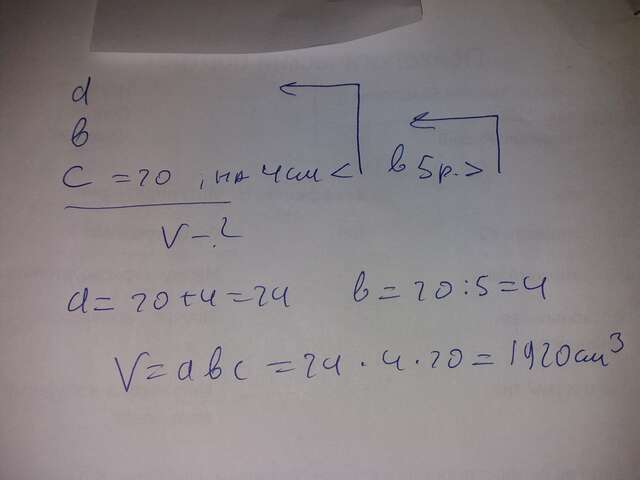 a
b
c = 20, на 4 см < в 5 р. >
V - ?
a = 20 + 4 = 24 b = 20 : 5 = 4
V = abc = 24 · 4 · 20 = 1920 см³